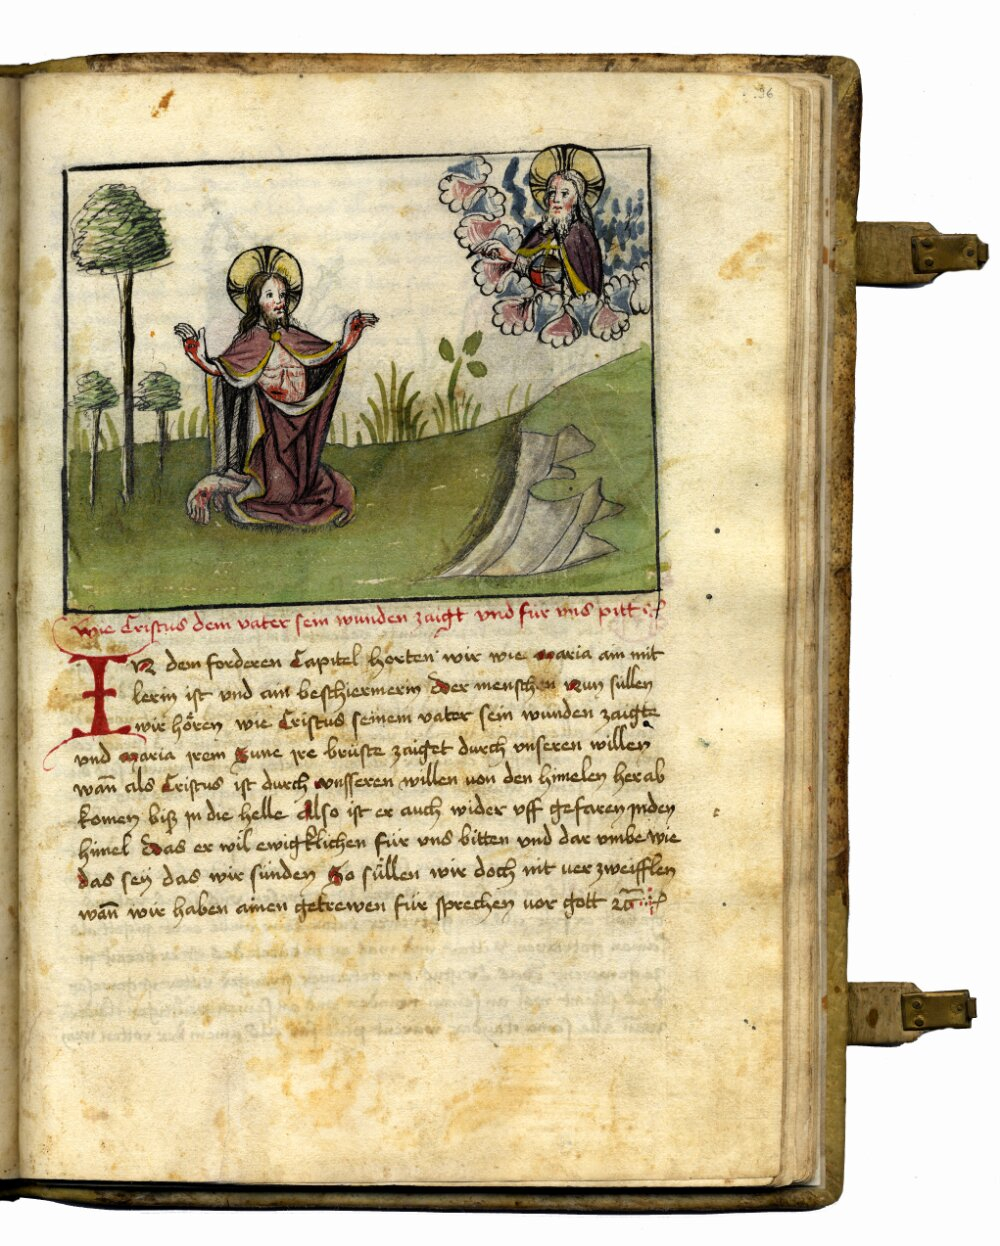 96
wie Cristus dem vater sein wunden zaigt und für uns pitt
In dem forderen Capitel horten wir wie maria am mit
lerin ist und ain beschiermerin der menschen Nun süllen
wir hören wie Cristus seinem vater sein wunden zaigte
und maria irem Sune ire brüste zaiget durch unseren willen
wan̄ als Cristus ist durch unsseren willen von den himelen her ab
komen biß in die helle Also ist er auch wider uff gefaren inden
himel das er wil ewigklichen für uns bitten und dar umbe wie
das seÿ das wir sünden So süllen wir doch nit ver zweifflen
wan̄ wir haben ainen getrewen für sprechen vor gott